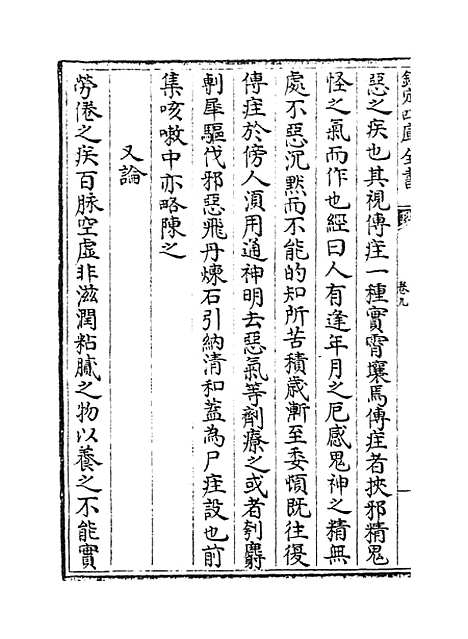 欽定四庫全書
卷九
惡之疾也其視傳疰一種實霄壤焉傳疰者挾邪精鬼
怪之氣而作也經曰人有逢年月之厄感鬼神之精無
處不惡沉默而不能的知所苦積歲漸至委頓既往復
傳疰於傍人湏用通神明去惡氣等劑療之或者刳麝
剸犀驅伐邪惡飛丹煉石引納清和葢為尸疰設也前
集咳嗽中亦略陳之
又論
勞倦之疾百脉空虛非滋潤粘膩之物以養之不能實